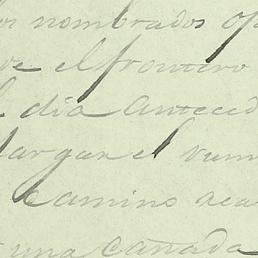 nombrados
el frontero
día anteced
largar el rum
camino aca
una cañada